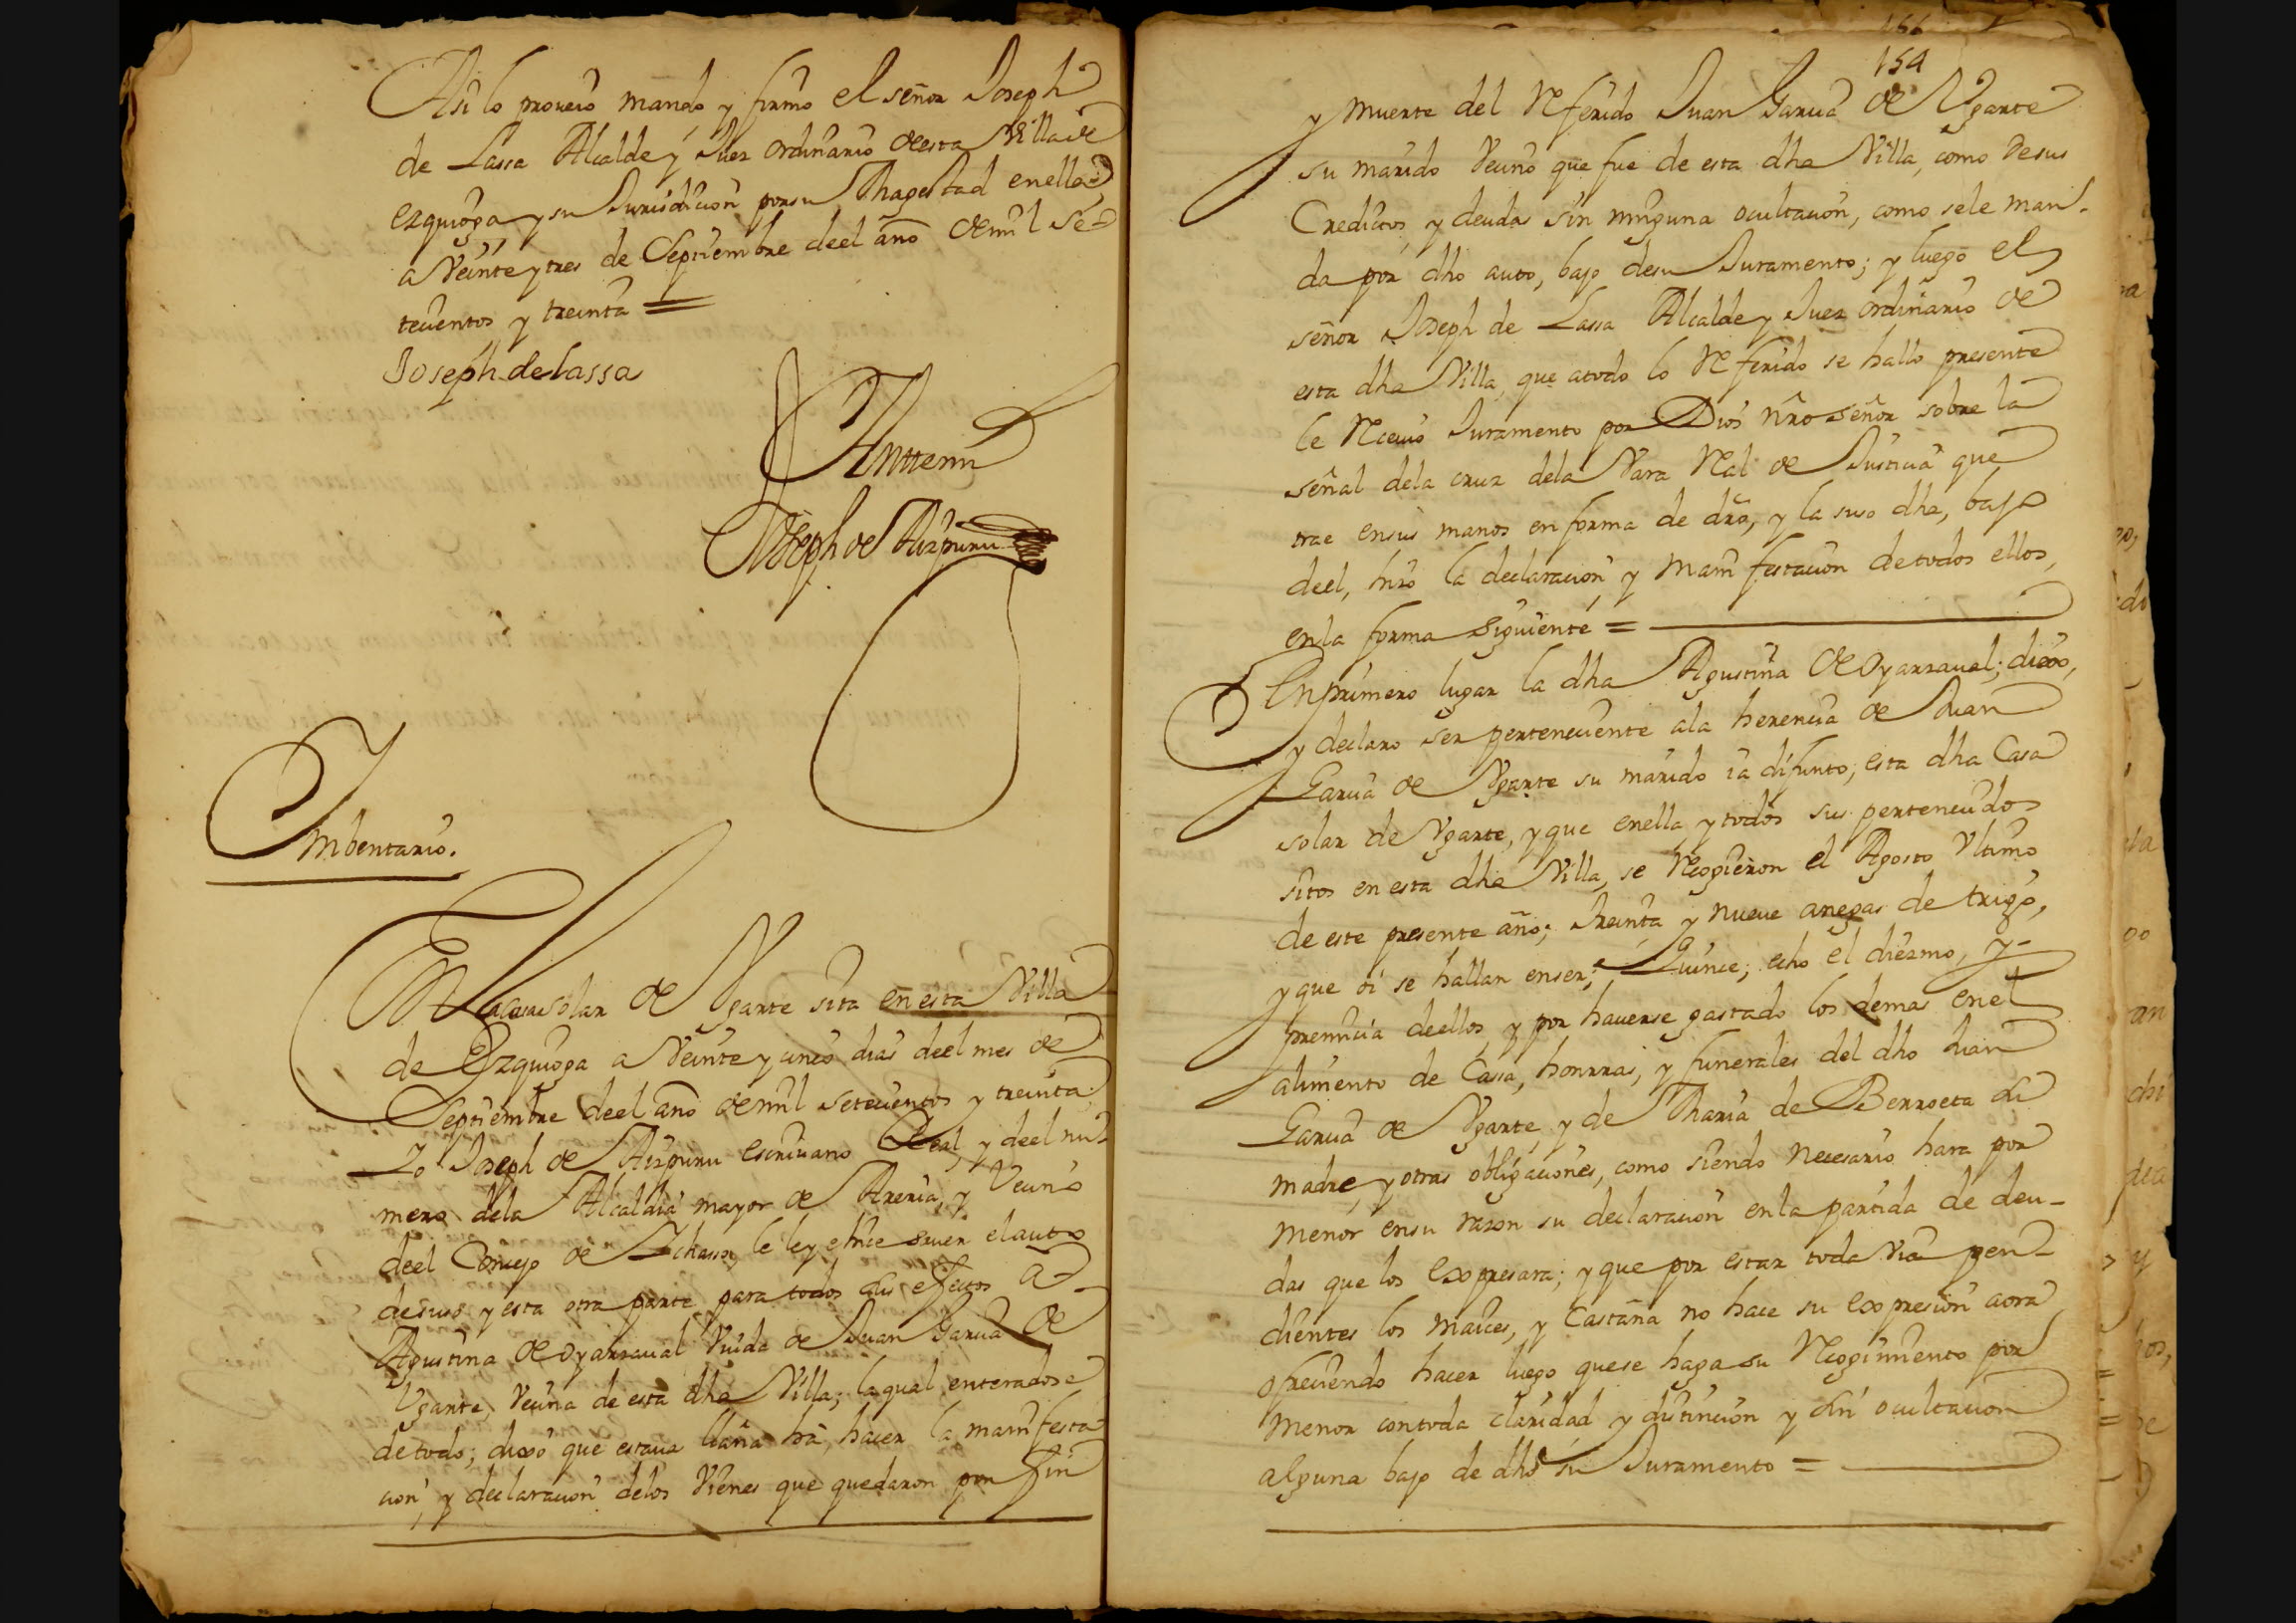 Asi lo proveio mando y firmo el señor Joseph
de Lassa Alcalde y Juez ordinario deesta Villa de
ezquioga y su Jurisdicion por su Magestad enella
a Veinte y tres de Septiembre deel año de mil se=
tecientos y treinta =
Joseph de lassa
Anttemi
Joseph de Aizpuru
Imbentario.
En la casa solar de Vgarte sita en esta Villa
de Ezquioga a Veinte y cinco dias deel mes de
Septiembre deel año de mil setecientos y treinta
Yo Joseph de Aizpuru escrivano Real, y deel nu=
mero dela Alcaldia mayor de Areria, y Vecino
deel Concejo de Ichasso, le ley e hice saver el auto
de suso y esta otra parte para todos sus efectos a
Agustina de oyarzaval Viuda de Juan Garcia de
Vgarte, Vecina de esta dha Villa; la qual enteradose
de todo; dixo que estava llana ha hacer la manifesta
cion, y declaracion delos Vienes que quedaron por fin
154
y muerte del Referido Juan Garcia de Vgarte
su marido Vecino que fue de esta dha Villa, como de sus
Creditos, y deudas sin ninguna ocultacion, como sele man-
da por dho auto, bajo desu Juramento; y luego el
señor Joseph de Lassa Alcalde y Juez ordinario de
esta dha Villa, que atodo lo Referido se hallo presente
le Recivio Juramento por Dios nro señor sobre la
señal dela cruz dela Vara Real de Justicia que
trae ensus manos en forma de dro, y la suso dha, bajo
deel, hizo la declaracion y manifestacion detodos ellos,
enla forma siguiente =
En primero lugar la dha Agustina de oyarzaval; dixo,
y declaro ser perteneciente ala herencia de Juan
Garcia de Vgarte su marido ia difunto, esta dha Casa
solar de Vgarte, y que enella y todos sus pertenecidos
sitos en esta dha Villa, se Recogieron el Agosto Vltimo
de este presente año; treinta y nueve anegas de trigo,
y que oi se hallan enser; Quince; echo el diezmo, y-
premicia deellos, y por haverse gastado los demas enel
alimento de Cassa, honrras, y funerales del dho Juan
Garcia de Vgarte, y de Maria de Berroeta su
madre, y otras obligaciones, como siendo necesario hara por
menor ensu razon su declaracion enla partida de deu-
das que los expresara; y que por estar toda Via pen-
dientes los maices, y Castaña no hace su expresion aora,
ofreciendo hacer luego quese haga su Recogimiento por
menor contoda claridad y distincion y sin ocultacion
alguna bajo de dho su Juramento =